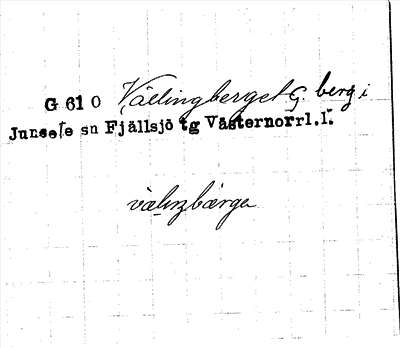 G 61 O Källingberget G. berg i
Junsele sn Fjällsjö tg Västernorrl.l.